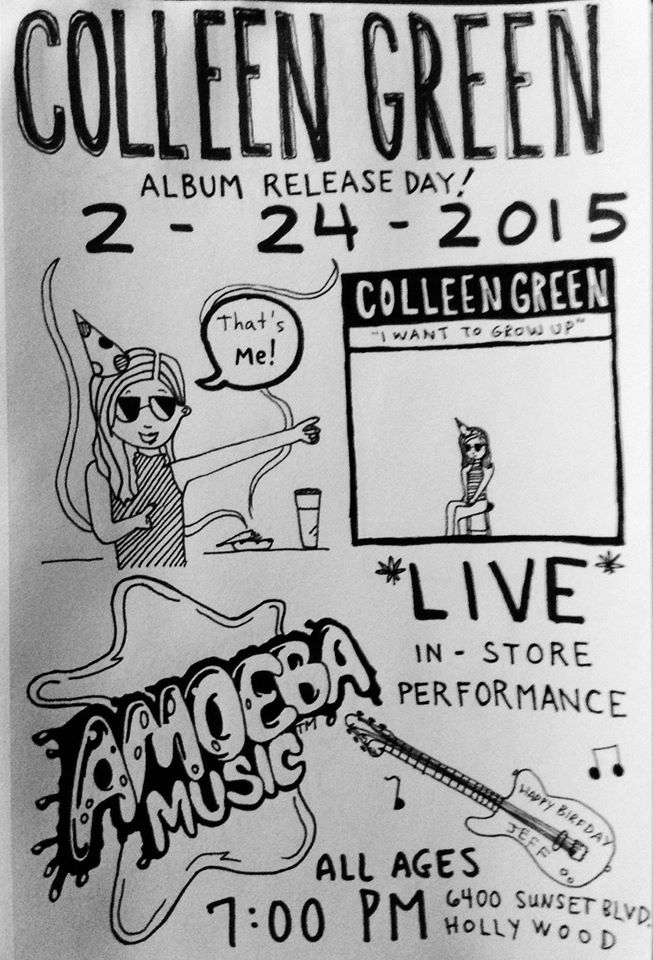 COLLEEN GREEN
ALBUM RELEASE DAY!
2 - 24 - 2015
That's
Me!
COLLEEN GREEN
"I WANT TO GROW UP"
*LIVE*
IN - STORE
PERFORMANCE
AMOEBA
MUSIC TM
HAPPY BIRFDAY
JEFF
ALL AGES
7:00 PM
6400 SUNSET BLVD.
HOLLYWOOD